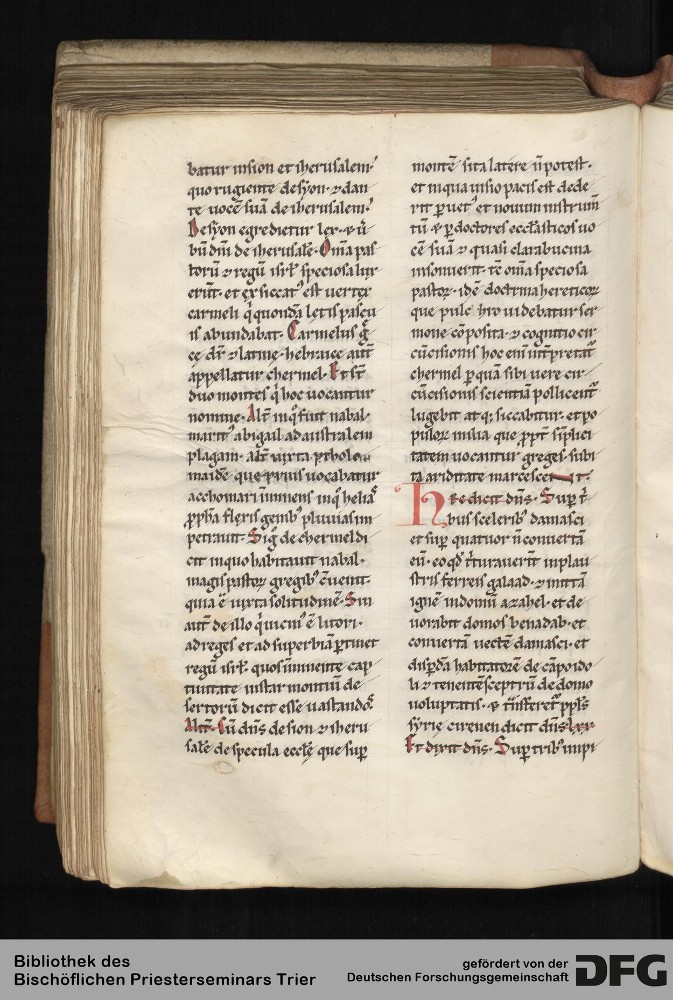 batur insion et iherusalem.
quo rugiente desyon. ⁊ dan
te uocē suā de iherusalem.
Desyon egredietur lex. ⁊ u̅
bū dn̄i de iherusalē. Om̄a pas
torū ⁊ regū isrl̄ speciosa lux
erūt. et exsiccat᷒ est uertex
carmeli q̇ quondā letis pascu
is abundabat. Carmelus g̅
ce dr̄ ⁊ latine. hebraice aut̄
appellatur chermel. Et st̄
duo montes q̇ hoc uocantur
nomine. Alt̄ inq̇ fuit nabal.
marit᷒ abigail ad australem
plagam. alt̄ iuxta ptholo
maidē que prius uocabatur
acchomari īminens inq̇ helia᷒
ꝓph̄a flexis genib᷒ pluuias im
petrauit. Sig̅ de chermel di
cit inquo habitauit nabal.
magis pastoꝝ gregib᷒ c̄uenit.
quia ē iuxta solitudinē. Sin
aut̄ de illo q̇ uicin᷒ ē litori.
ad reges et ad superbiā ꝑtinet
regū isrl̄. quos īminente cap
tiuitate instar montiū de
sertorū dicit esse uastandos.
Alit̄. Cū dn̄s de sion ⁊ iheru
salē de specula eccl̄e que sup̄
montē sita latere n̄ potest.
et inqua uisio pacis est dede
rit ꝑ uet᷒ et nouum instrum̄
tū ⁊ ꝑ doctores eccl̄asticos uo
cē suā ⁊ quasi clara bucina
insonuerit. tc̄ om̄a speciosa
pastoꝝ. idē doctrina hereticoꝝ
que pulchro uidebatur ser
mone cōposita. ⁊ cognitio cir
cūcisionis hoc eni int̄pretat᷒
chermel ꝑ quā sibi uere cir
cūcisionis scientiā pollicent᷒
lugebit atq; siccabitur. et po
puloꝝ milia que ꝓpt̄ simplici
tatem uocantur greges. subi
ta ariditate marcescent.
Hec dicit dn̄s. Sup t̄
bus scelerib᷒ damasci
et sup quatuor n̄ conuertā
eū. eo qd̄ t̄turauerīt in plau
stris ferreis galaad. ⁊ mittā
ignē in domū azahel. et de
uorabit domos benadab. et
conterā uectē damasci. et
disꝑdā habitatorē de cāpo ido
li ⁊ tenentē sceptrū de domo
uoluptatis. ⁊ t̄nsferet᷒ ppl̄s
syrie cirenen dicit dn̄s. lxx.
Et dixit dn̄s. Sup trib᷒ impi
Bibliothek des
Bischöflichen Priesterseminars Trier
gefördert von der
Deutschen Forschungsgemeinschaft
DFG